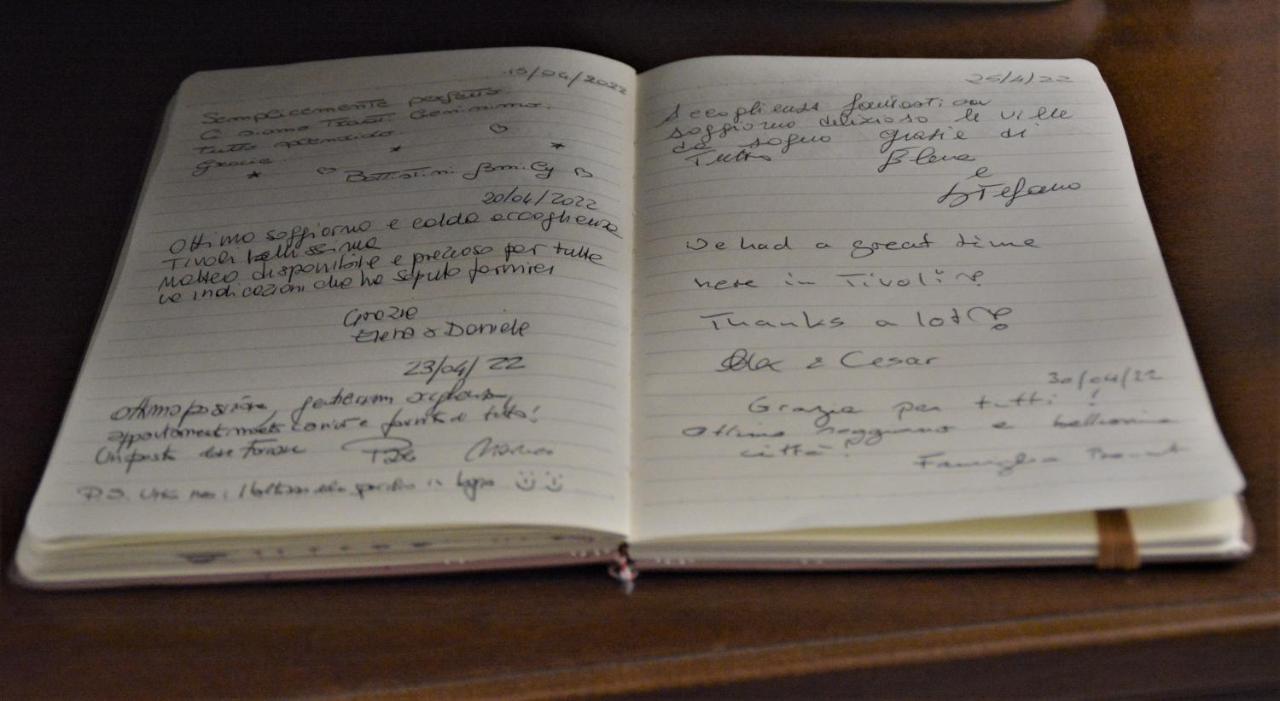 15/04/2022
Semplicemente perfetto
Ci siamo trovati benissimo.
tutto splendido
Grazie.
Battistini family
20/04/2022
Ottimo soggiorno e calda accoglienza
Tivoli bellissima
Matteo disponibile e prezioso per tutte
le indicazioni che ha saputo fornirci
Grazie
Elena & Daniele
23/04/22
Ottima posizione,
appartamento e tutto!
P.S. in bagno
25/4/22
Accoglienza fantastica
soggiorno delizioso le ville
da sogno grazie di
Tutto Elena
e
Stefano
We had a great time
here in Tivoli
Thanks a lot
& Cesar
30/04/22
Grazie per tutti!
Ottimo soggiorno e bellissima
città!
Famiglia